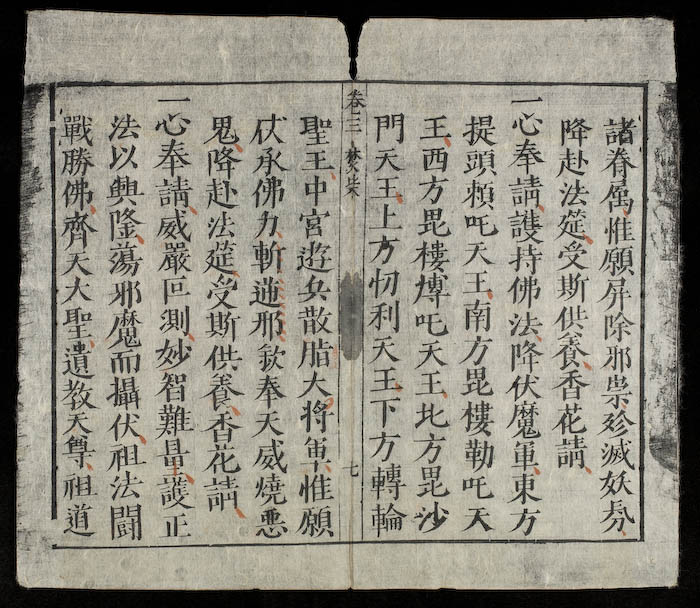 諸眷属惟願屏除邪祟殄滅妖氛
降赴法筵受斯供養香花請
一心奉請護持佛法降伏魔軍東方
提頭頼吒天王南方毘樓勒吒天
王西方毘樓愽吒天王北方毘沙
門天王上方忉利天王下方轉輪
卷三
七
聖王中宮遊兵散脂大将軍惟願
伏承佛力斬邪欽奉天威燒悪
鬼降赴法筵受斯供養香花請
一心奉請威嚴叵測妙智難量護正
法以興隆蕩邪魔而攝伏祖法闘
戰勝佛齊天大聖遺教天尊祖道